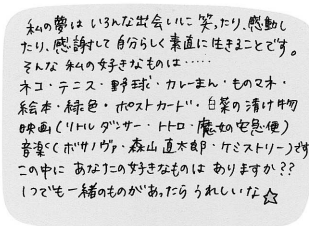 私の夢は いろんな出会いに 笑ったり、感動し
たり、感謝して 自分らしく 素直に 生きることです。
そんな 私の好きなものは‥‥‥
ネコ・テニス・野球・カレーまん・ものマネ・
絵本・緑色・ポストカード・白菜の漬け物
映画(リトルダンサー・トトロ・魔女の宅急便)
音楽(ボサノヴァ・森山直太郎・ケミストリー)です
この中に あなたの好きなものは ありますか??
いつでも一緒のものがあったら うれしいな☆